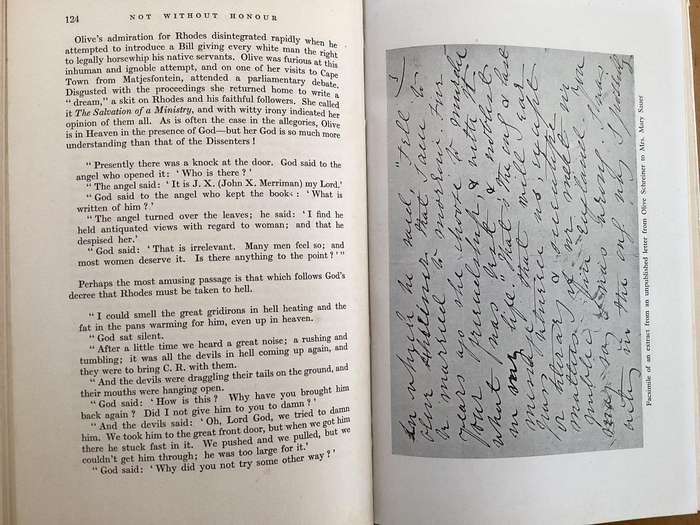 124 NOT WITHOUT HONOUR
Olive's admiration for Rhodes disintegrated rapidly when he
attempted to introduce a Bill giving every white man the right
to legally horsewhip his native servants. Olive was furious at this
inhuman and ignoble attempt, and on one of her visits to Cape
Town from Matjesfontein, attended a parliamentary debate.
Disgusted with the proceedings she returned home to write a
“ dream,” a skit on Rhodes and his faithful followers. She called
it The Salvation of a Ministry, and with witty irony indicated her
opinion of them all. As is often the case in the allegories, Olive
is in Heaven in the presence of God—but her God is so much more
understanding than that of the Dissenters !
“ Presently there was a knock at the door. God said to the
angel who opened it: ‘ Who is there ? ’
“ The angel said: ‘ It is J. X. (John X. Merriman) my Lord.’
“ God said to the angel who kept the books : ‘ What is
written of him ? ’
“ The angel turned over the leaves; he said: ‘ I find he
held antiquated views with regard to woman; and that he
despised her.’
“ God said: ‘ That is irrelevant. Many men feel so; and
most women deserve it. Is there anything to the point ? ’ ”
Perhaps the most amusing passage is that which follows God's
decree that Rhodes must be taken to hell.
“ I could smell the great gridirons in hell heating and the
fat in the pans warming for him, even up in heaven.
“ God sat silent.
“ After a little time we heard a great noise; a rushing and
tumbling; it was all the devils in hell coming up again, and
they were to bring C. R. with them.
“ And the devils were draggling their tails on the ground, and
their mouths were hanging open.
“ God said: ‘ How is this ? Why have you brought him
back again ? Did I not give him to you to damn ? ’
“ And the devils said: ‘ Oh, Lord God, we tried to damn
him. We took him to the great front door, but when we got him
there he stuck fast in it. We pushed and we pulled, but we
couldn't get him through; he was too large for it.’
“ God said: ‘ Why did you not try some other way ? ’
In which he said, "Tell
Olive Schreiner that I am to
be married to morrow. Four
years ago she chose to
our friendship, & with it
what was best & noblest
in my life. That
that will ever
Facsimile of an extract from an unpublished letter from Olive Schreiner to Mrs. Mary Sauer